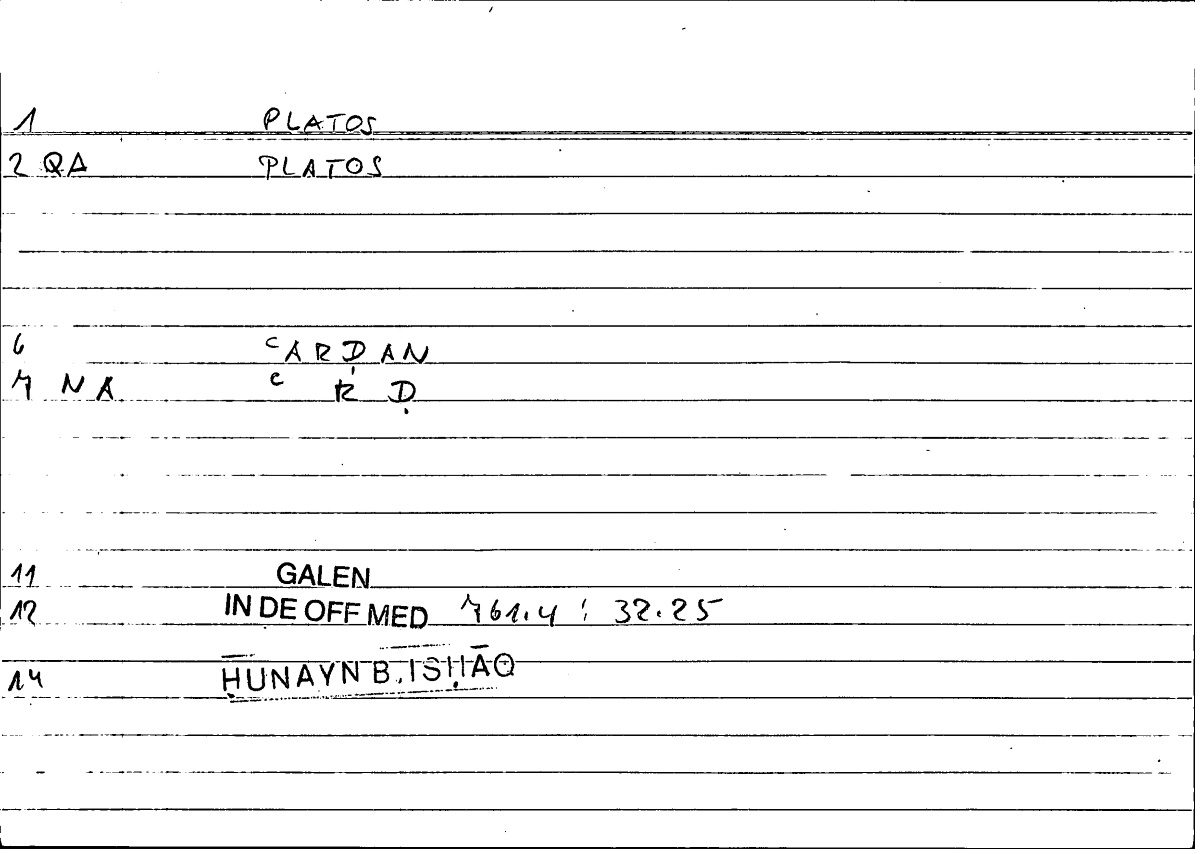 1 PLATOS
2 QA PLATOS
6 ᶜARḌAN
7 NA ᶜ R Ḍ
11 GALEN
12 IN DE OFF MED 761.4 : 32.25
14 ḤUNAYN B. ISḤĀQ